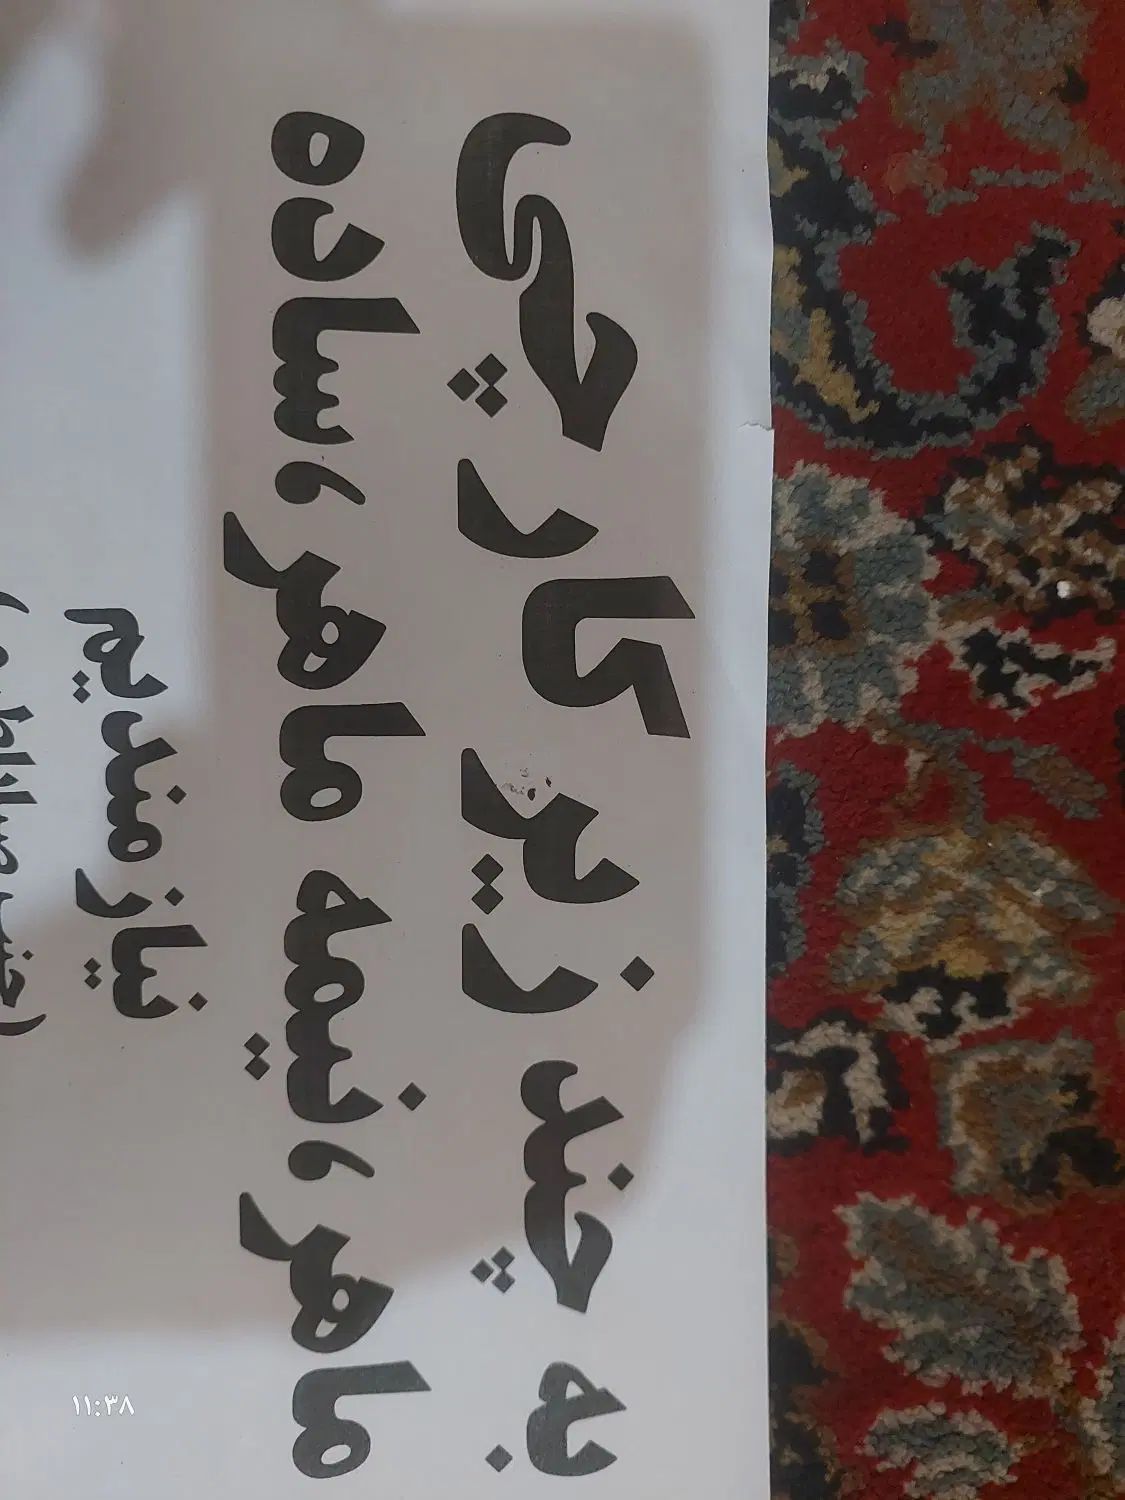 به چند زیر کار چی
ماهر، نیمه ماهر، ساده
نیاز مندیم
۱۱:۳۸